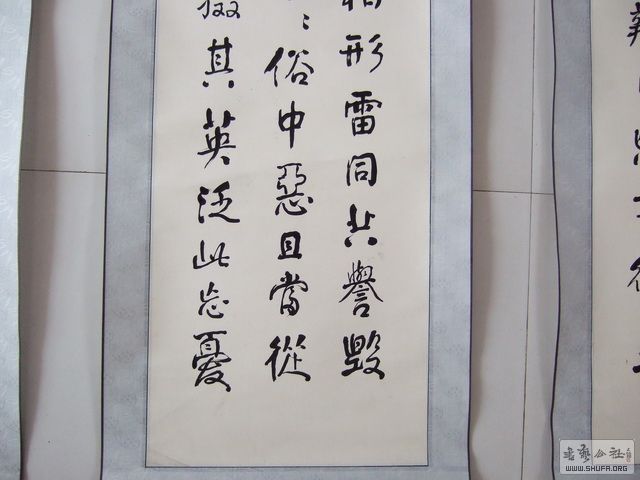 相形雷同共譽毀
々俗中惡且當從
掇其英泛此忘憂
書藝公社
WWW.SHUFA.ORG